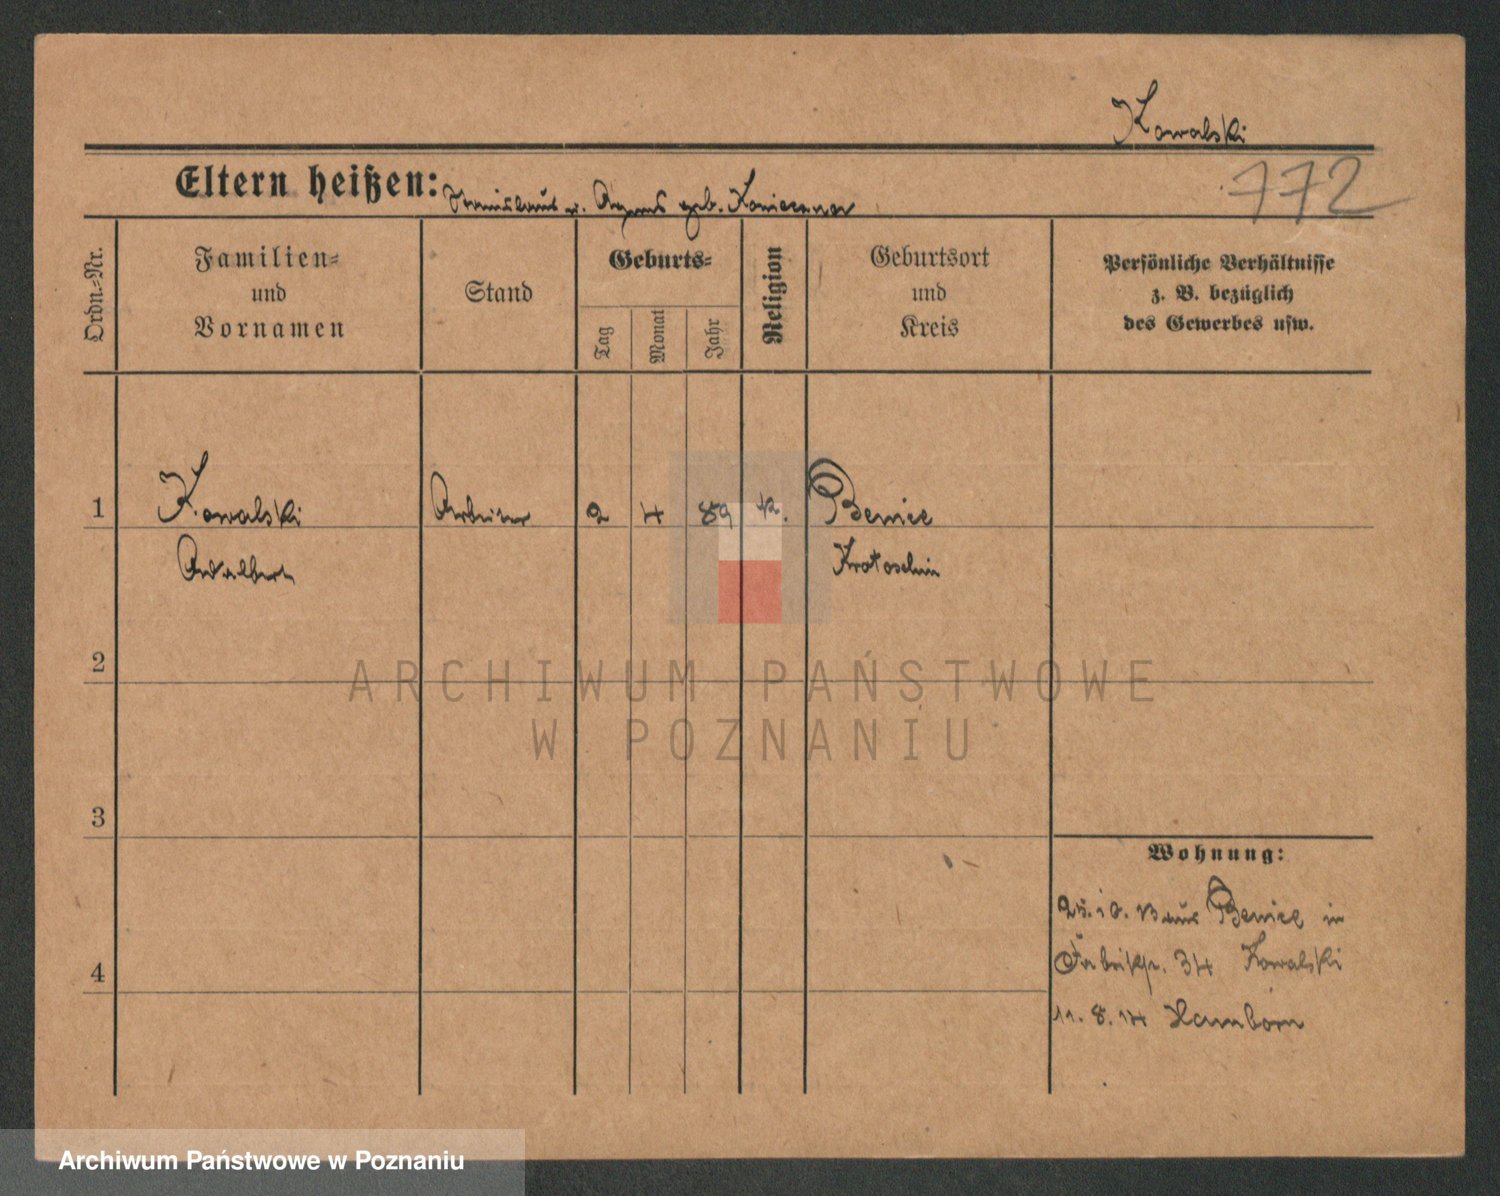 Kowalski
Eltern heißen: Stanislaus u. Agnes geb. Konieczna
772
Ordn.-Nr.
Familien-
und
Vornamen
Stand
Geburts-
Tag
Monat
Jahr
Religion
Geburtsort
und
Kreis
Persönliche Verhältnisse
z. B. bezüglich
des Gewerbes usw.
1 Kowalski Arbeiter 2 4 89 k. Benice
Adalbert Krotoschin
2
ARCHIWUM PAŃSTWOWE
W POZNANIU
3
Wohnung:
25.10.13 aus Benice in
Fabrikstr. 34 Kowalski
4
11.8.14 Hamborn
Archiwum Państwowe w Poznaniu